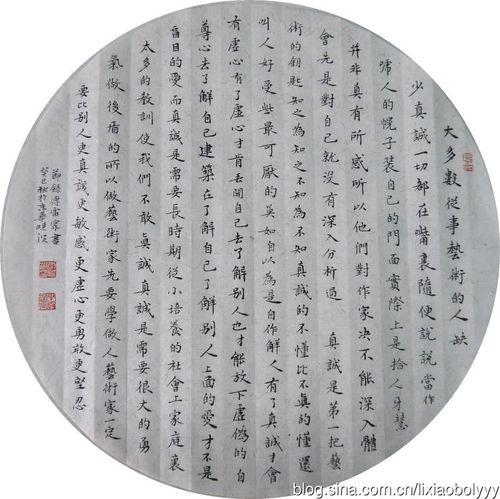 大多數從事藝術的人缺
少真誠一切都在嘴裏隨便說說當作
唬人的幌子裝自己的門面實際上是拾人牙慧
並非真有所感所以他們對作家決不能深入體
會先是對自己就沒有深入分析過 真誠是第一把藝
術的鑰匙知之為知之不知為不知真誠的不懂比不真的懂還
叫人好受些最可厭的莫如自以為是自作解人有了真誠才會
有虛心有了虛心才肯丟開自己去了解別人也才能放下虛偽的自
尊心去了解自己建築在了解自己了解別人上面的愛才不是
盲目的愛而真誠是需要長時期從小培養的社會上家庭裏
太多的教訓使我們不敢真誠真誠是需要很大的勇
氣做後盾的所以做藝術家先要學做人藝術家一定
要比別人更真誠更敏感更虛心更勇敢更堅忍
節錄傅雷家書
癸巳秋於
blog.sina.com.cn/lixiaobolyyv